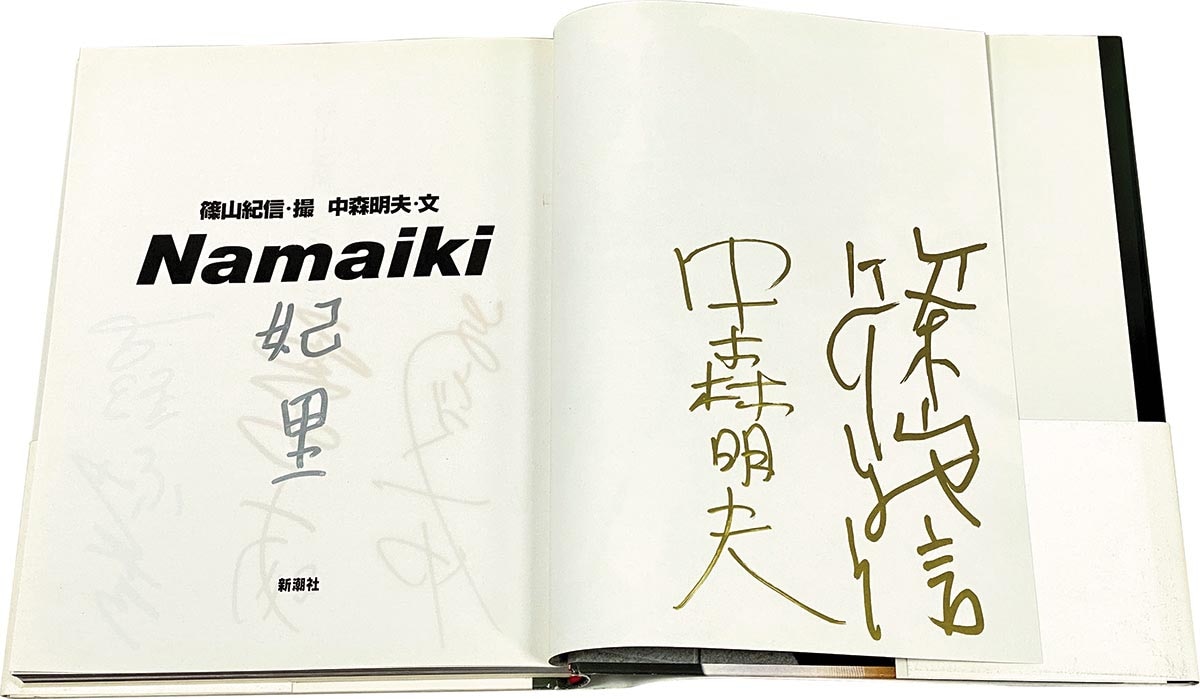 篠山紀信・撮 中森明夫・文
Namaiki
妃里
新潮社
篠山紀信
中森明夫